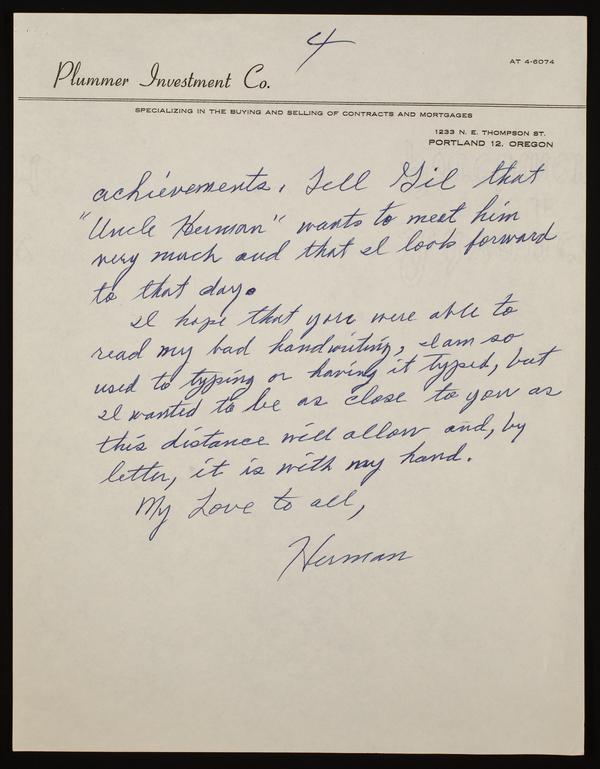 4
AT 4-6074
Plummer Investment Co.
SPECIALIZING IN THE BUYING AND SELLING OF CONTRACTS AND MORTGAGES
1233 N. E. THOMPSON ST.
PORTLAND 12, OREGON
achievements. Tell Gil that
"Uncle Herman" wants to meet him
very much and that I look forward
to that day.
I hope that you were able to
read my bad handwriting, I am so
used to typing or having it typed, but
I wanted to be as close to you as
this distance will allow and, by
letter, it is with my hand.
My Love to all,
Herman